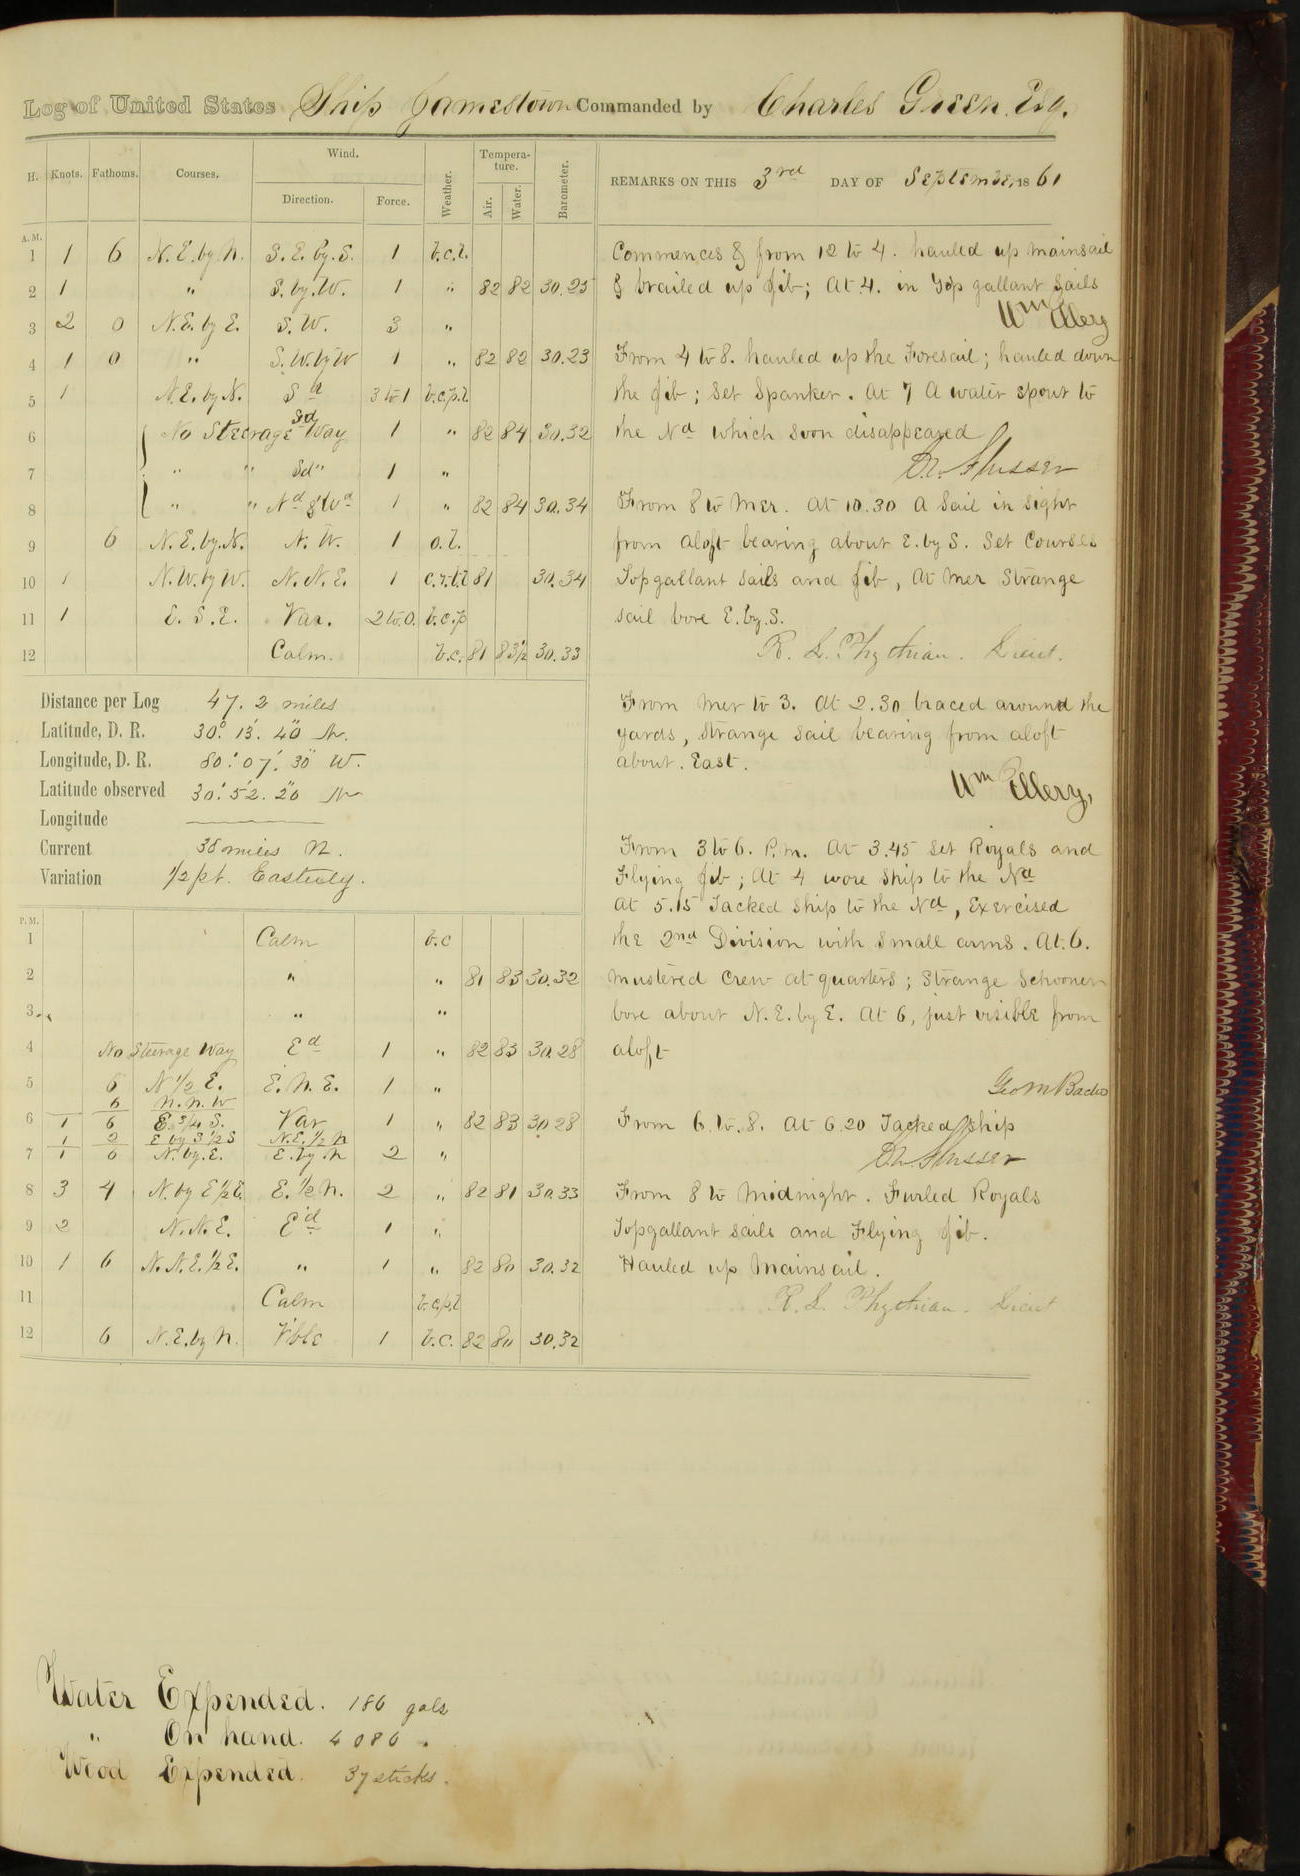 Log of United States Ship Jamestown Commanded by Charles Green Esq.
H. Knots. Fathoms. Courses. Wind. Direction. Force. Weather. Temperature. Air. Water. Barometer.
REMARKS ON THIS 3rd DAY OF September, 1861
A.M.
1 1 6 N.E. by N. S.E. by S. 1 b.c.l.
2 1 " S. by W. 1 " 82 82 30.25
3 2 0 N.E. by E. S.W. 3 "
4 1 0 " S.W. by W 1 " 82 82 30.23
5 1 N.E. by N. Sd 3 to 1 b.c.p.l.
6 No Steerage Way Sd 1 " 82 84 30.32
7 " " Sd " 1 "
8 " " Nd & Wd 1 " 82 84 30.34
9 6 N.E. by N. N.W. 1 o.l.
10 1 N.W. by W. N.N.E. 1 c.r.t.l 81 30.34
11 1 E.S.E. Var. 2 to 0. b.c.p
12 Calm. b.c. 81 83½ 30.33
Commences & from 12 to 4. hauled up mainsail
& brailed up jib; At 4. in Top gallant sails
Wm Ellery
From 4 to 8. hauled up the Foresail; hauled down
the jib; Set Spanker. At 7 A water spout to
the Nd which soon disappeared
C.W. Flusser
From 8 to Mer. At 10.30 A Sail in sight
from aloft bearing about E. by S. Set Courses
Topgallant sails and jib, At Mer Strange
sail bore E. by S.
R. L. Phythian. Lieut.
Distance per Log 47.2 miles
Latitude, D. R. 30° 13' 40" N.
Longitude, D. R. 80° 07' 30" W.
Latitude observed 30° 52' 20" N
Longitude
Current 38 miles N.
Variation ½ pt. Easterly.
From Mer to 3. At 2.30 braced around the
yards, Strange sail bearing from aloft
about. East.
Wm Ellery,
From 3 to 6. P.m. At 3.45 Set Royals and
Flying jib; At 4 wore ship to the Nd
At 5.15 Tacked ship to the Nd, Exercised
the 2nd Division with small arms. At 6.
mustered crew at quarters; Strange Schooner
bore about N.E. by E. At 6, just visible from
aloft
Geo M Bache
From 6 to 8. At 6.20 Tacked ship
C.W. Flusser
From 8 to Midnight. Furled Royals
Topgallant sails and Flying jib.
Hauled up Mainsail.
R. L. Phythian. Lieut
P.M.
1 Calm b.c
2 " " 81 83 30.32
3 " "
4 No Steerage Way Ed 1 " 82 83 30.28
5 6 N ½ E. E.N.E. 1 "
6 N.N.W
6 1 6 E. ¾ S. Var 1 " 82 83 30.28
1 2 E by S ½ S N.E. ½ N
7 1 6 N. by E. E. by N 2 "
8 3 4 N. by E ½ E. E. ½ N. 2 " 82 81 30.33
9 2 N.N.E. Ed 1 "
10 1 6 N.N.E. ½ E. " 1 " 82 80 30.32
11 Calm b.c.p.l
12 6 N.E. by N. V'ble 1 b.c. 82 80 30.32
Water Expended. 186 gals
" On hand. 4086 "
Wood Expended. 37 sticks.